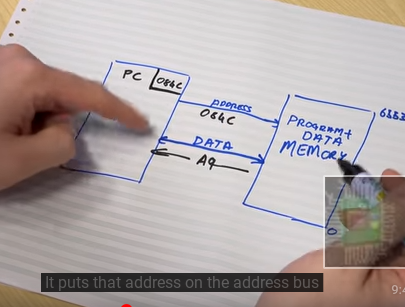 PC 084C
ADDRESS
084C
PROGRAM +
DATA
MEMORY
DATA
A9
0
It puts that address on the address bus